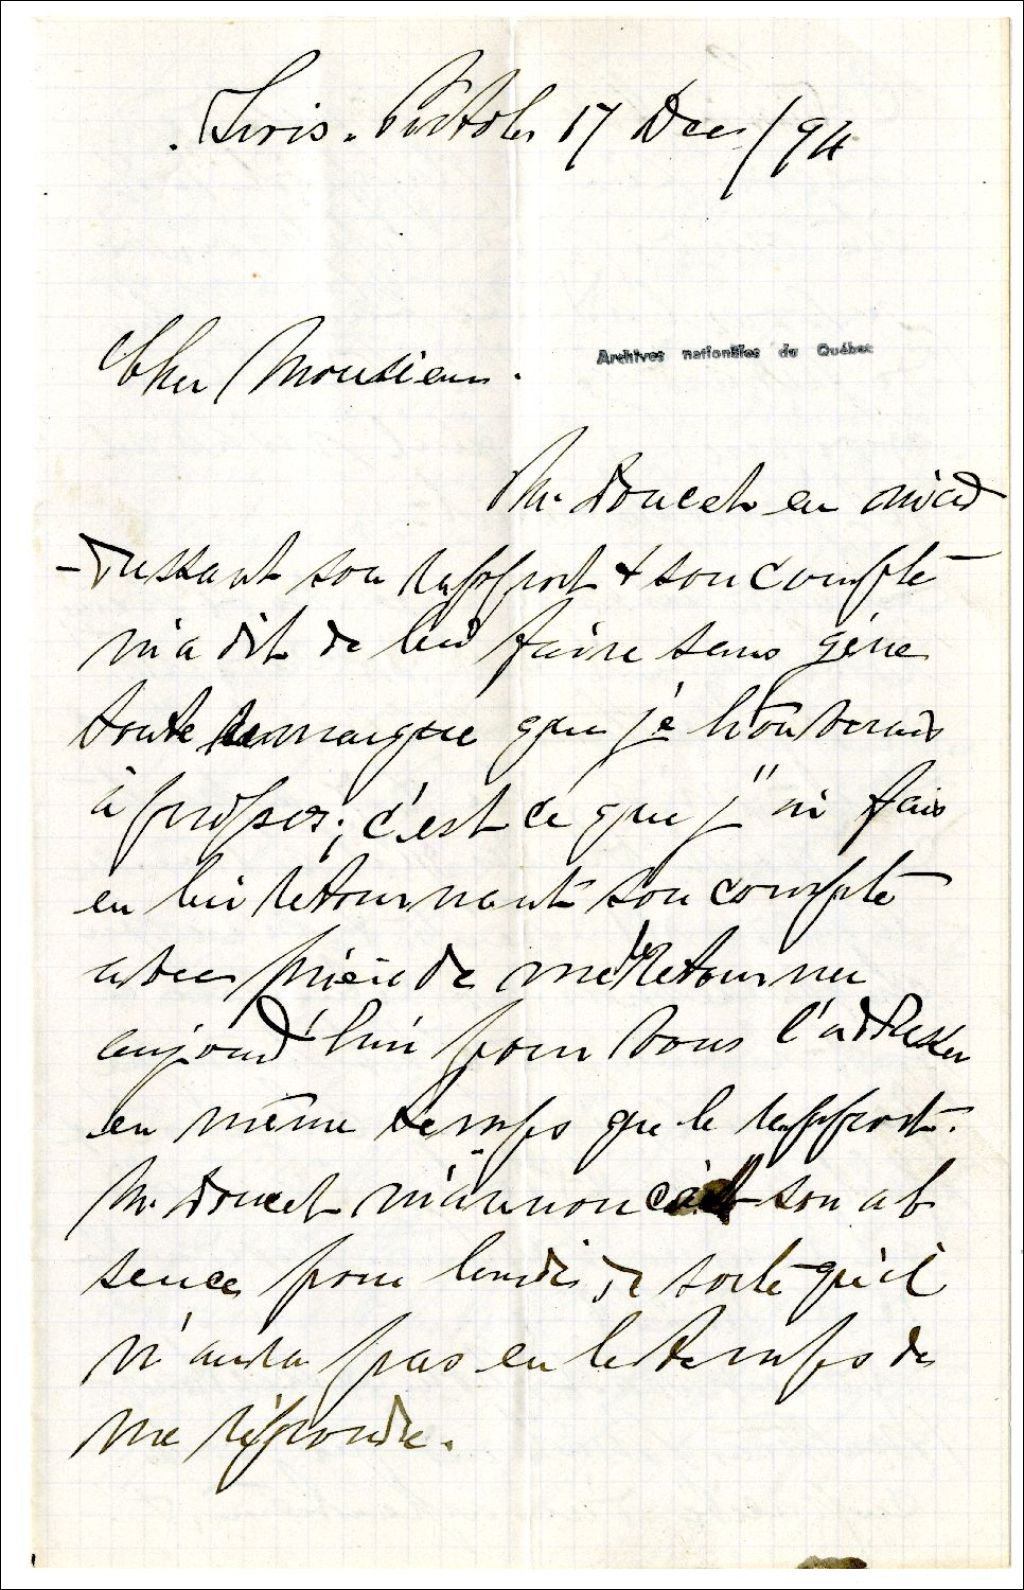 Trois-Pistoles 17 Dec/94
Cher Monsieur.
Archives nationales du Québec
M. Doucet en m'ad
-dressant son rapport & son compte
m'a dit de lui faire sans gêne
toute remarque que je trouverais
à propos; c'est ce que j'ai fais
en lui retournant son compte
avec prière de me le retourner
aujourd'hui pour vous l'adresser
en même temps que le rapport.
M. Doucet m'annonçait son ab
sence pour lundi, de sorte qu'il
n'aura pas eu le temps de
me répondre.